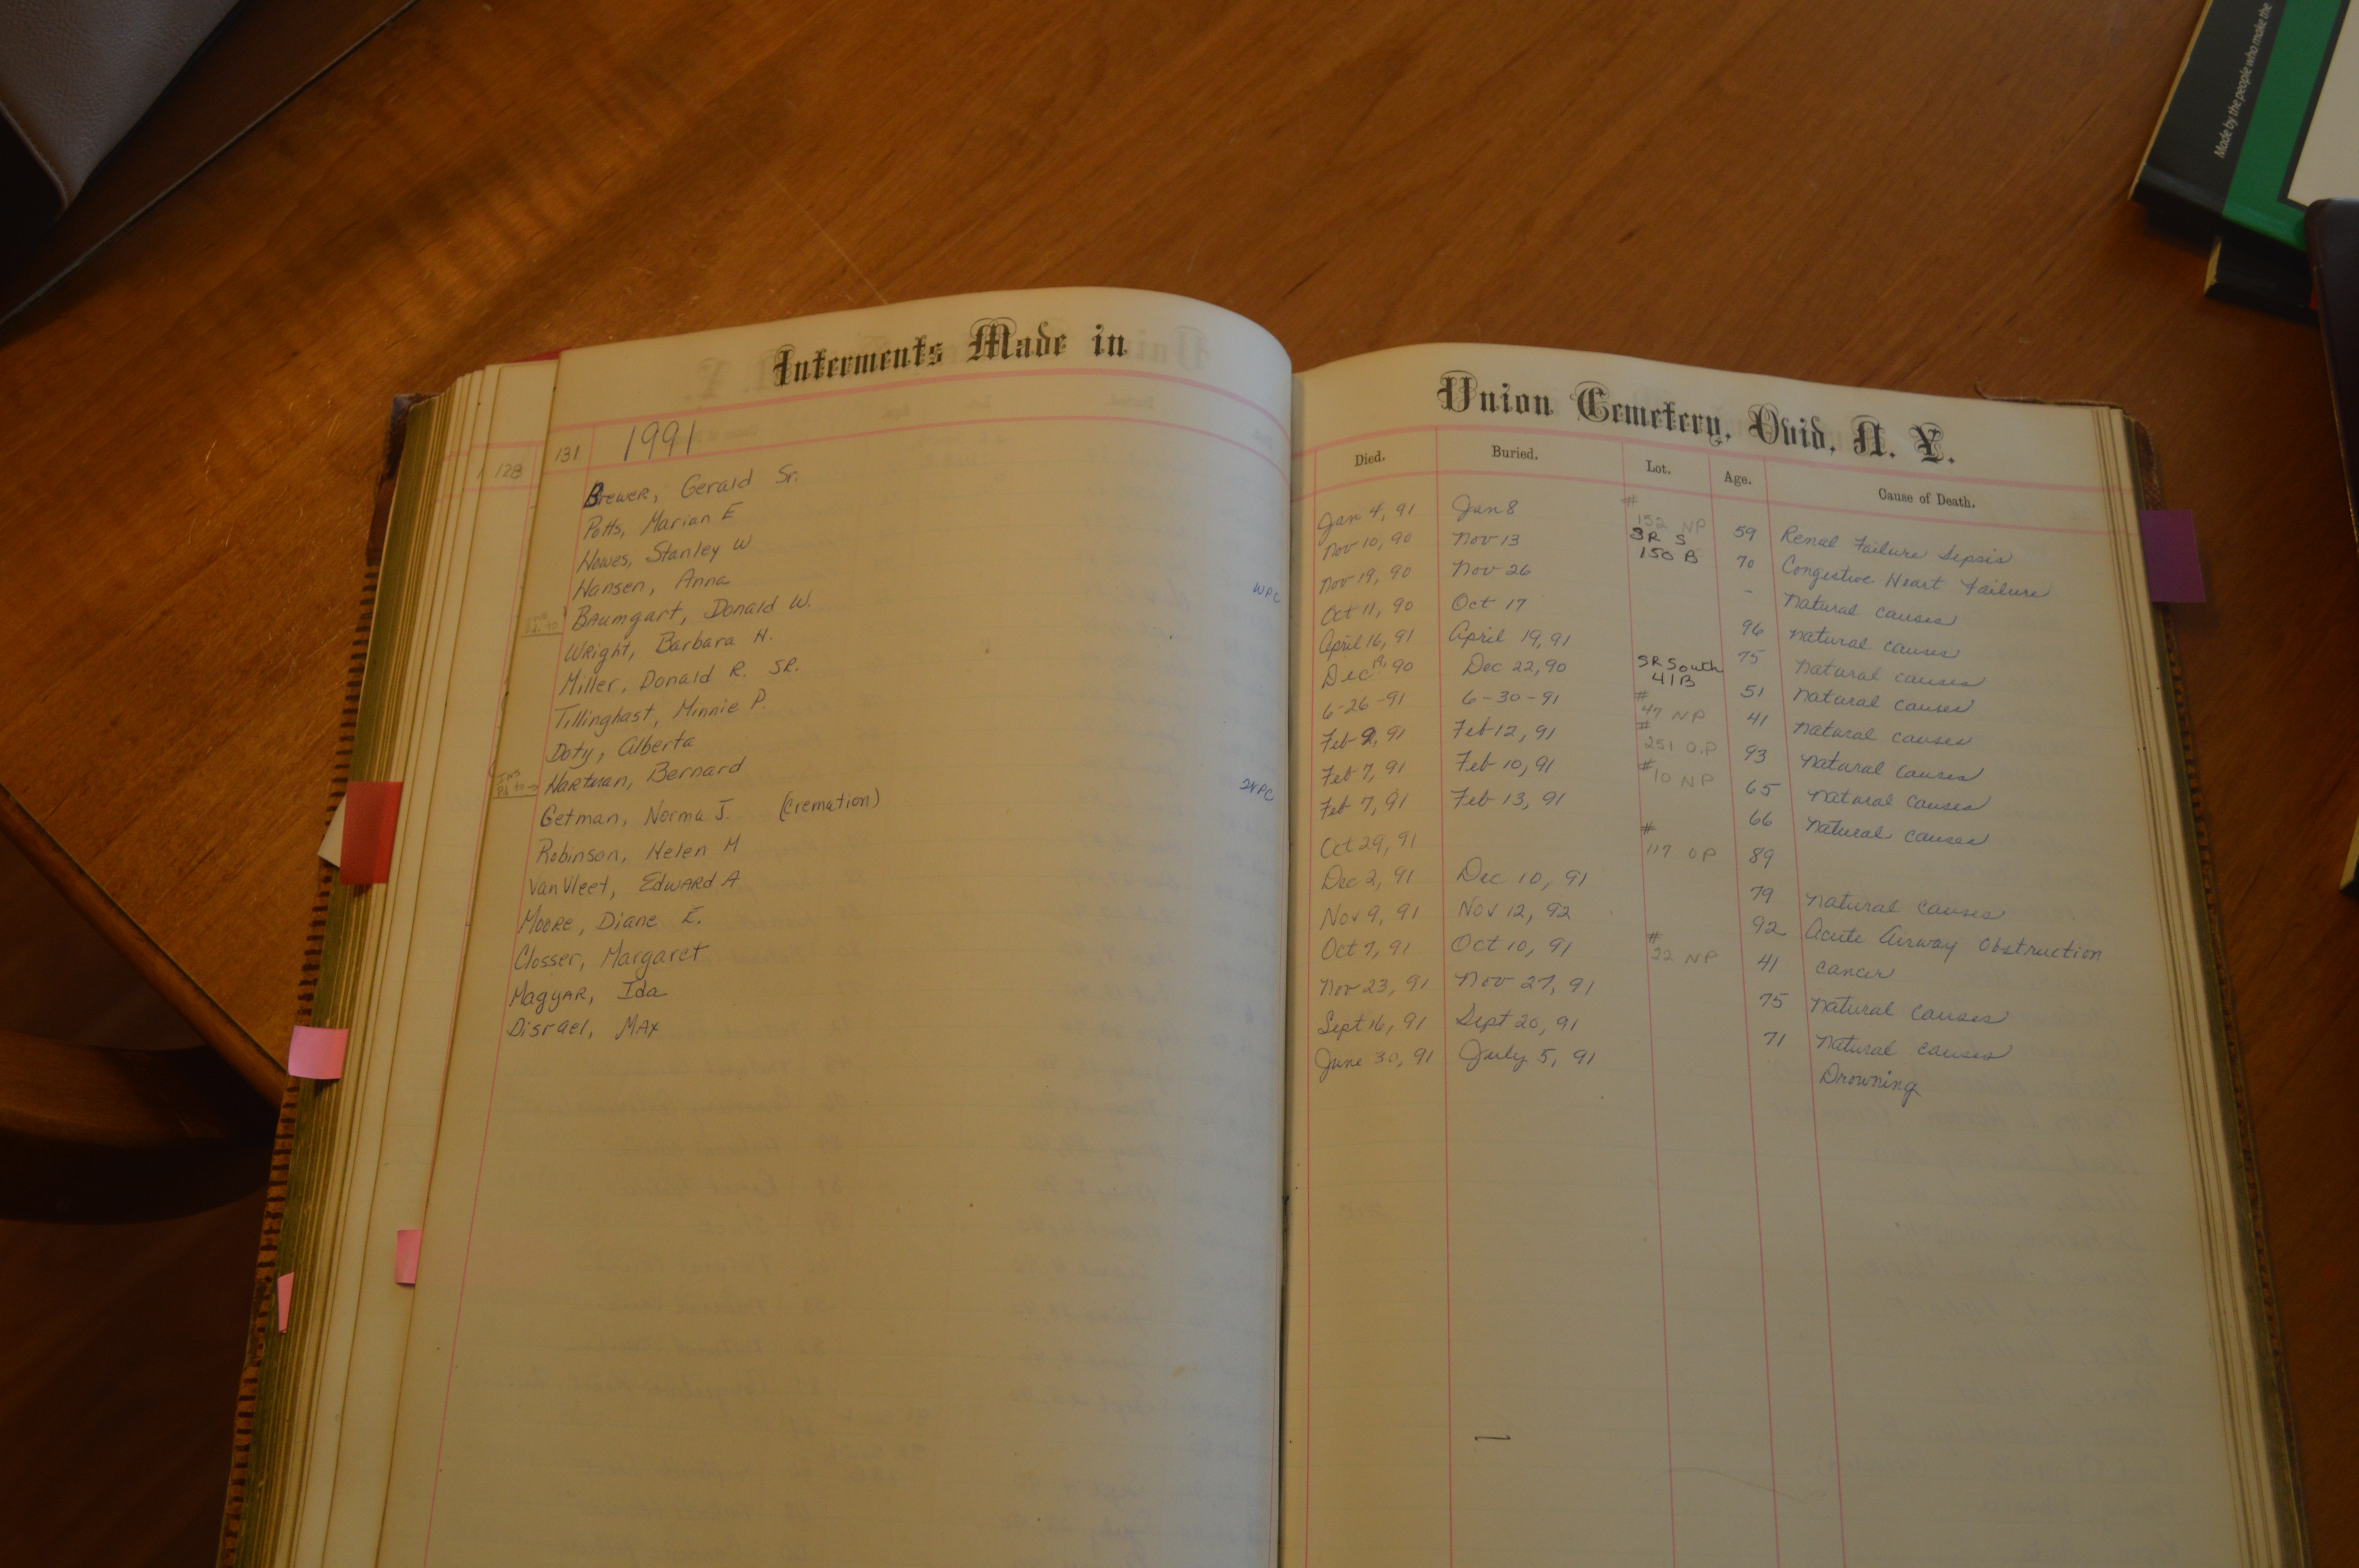 Made by the people who make the
Interments Made in
128
131 1991
Brewer, Gerald Sr.
Potts, Marian E
Howes, Stanley W
Hansen, Anna
WPC
Baumgart, Donald W.
Wright, Barbara H.
Miller, Donald R. SR.
Tillinghast, Minnie P.
Doty, Alberta
Hartman, Bernard
Getman, Norma J. (Cremation)
Robinson, Helen M
VanVleet, Edward A
Moore, Diane E.
Closser, Margaret
Magyar, Ida
Disrael, Max
Union Cemetery, Ovid, N. Y.
Died. Buried. Lot. Age. Cause of Death.
Jan 4, 91 Jan 8 # 152 NP 59 Renal Failure Sepsis
Nov 10, 90 Nov 13 SR S 150 B 70 Congestive Heart Failure
Nov 19, 90 Nov 26 - natural causes
Oct 11, 90 Oct 17 96 natural causes
April 16, 91 April 19, 91 75 natural causes
Dec 90 Dec 22, 90 SR South 41B 51 natural causes
6-26-91 6-30-91 # 47 NP 41 natural causes
Feb 9, 91 Feb 12, 91 # 251 O.P 93 natural causes
Feb 7, 91 Feb 10, 91 # 10 NP 65 natural causes
Feb 7, 91 Feb 13, 91 66 natural causes
Oct 29, 91 # 117 OP 89
Dec 2, 91 Dec 10, 91 79 natural causes
Nov 9, 91 Nov 12, 92 92 Acute Airway Obstruction
Oct 7, 91 Oct 10, 91 # 22 NP 41 cancer
Nov 23, 91 Nov 27, 91 75 natural causes
Sept 16, 91 Sept 20, 91 71 natural causes
June 30, 91 July 5, 91 Drowning